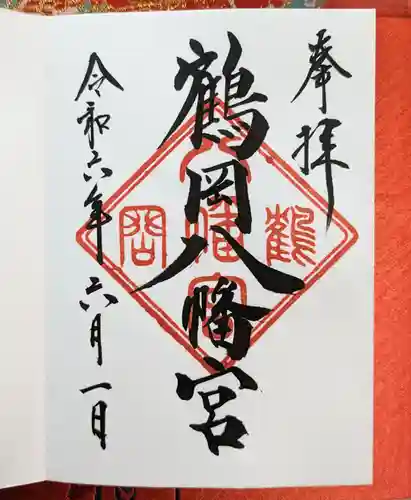 奉拝
鶴岡八幡宮
令和六年六月一日
鶴 岡
八幡宮